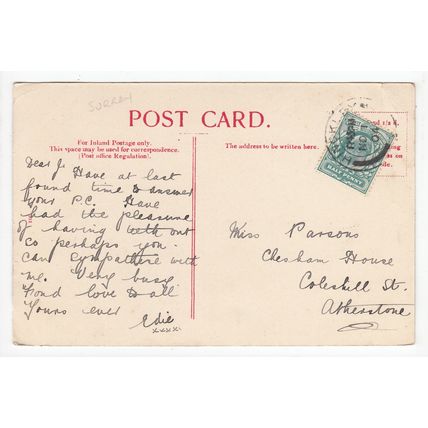 SURREY
POST CARD.
For Inland Postage only.
This space may be used for correspondence.
[Post office Regulation].
The address to be written here.
HALF PENNY
Dear J. Have at last
found time to answer
your P.C. Have
had the pleasure
of having with out
co perhaps you
can sympathise with
me. Very busy
Fond love to all
Yours ever
Edie
xxxx
Miss Parsons
Chesham House
Coleshill St.
Atherstone